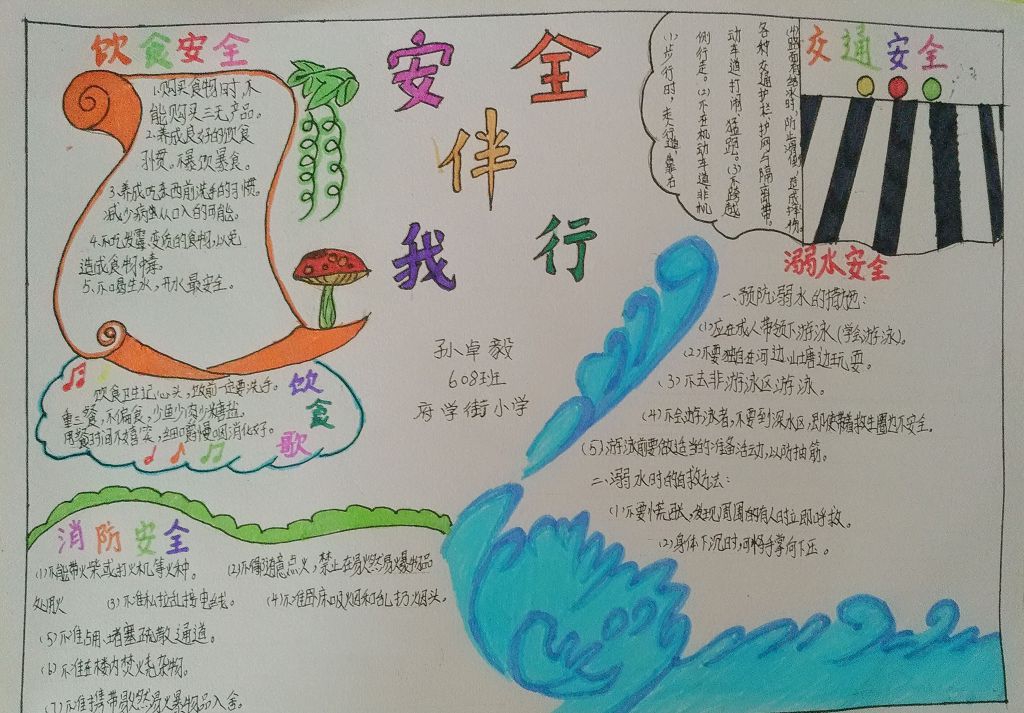 安全
伴
我行
孙卓毅
608班
府学街小学
饮食安全
1.购买食物时,不
能购买三无产品。
2.养成良好的饮食
习惯。不暴饮暴食。
3.养成吃东西前洗手的习惯。
减少病虫从口入的可能。
4.不吃发霉、变质的食物,以免
造成食物中毒。
5.不喝生水,开水最安全。
饮食歌
饮食卫生记心头,饭前一定要洗手。
重三餐,不偏食,少鱼少肉少烤盐。
用餐时间不嬉笑,细嚼慢咽消化好。
消防安全
(1)不能带火柴或打火机等火种。 (2)不得随意点火,禁止在易燃易爆物品
处用火 (3)不准私拉乱接电线。 (4)不准卧床吸烟和乱扔烟头。
(5)不准占用、堵塞疏散通道。
(6)不准在楼内焚火毛杂物。
(7)不准携带易燃易爆物品入舍。
交通安全
(1)步行时,走人行道,靠右
侧行走。(2)不在机动车道、非机
动车道打闹、猛跑。(3)不跨越
各种交通护栏、护网与隔离带。
(4)路面有结冰时,防止滑倒,造成摔伤。
溺水安全
一、预防溺水的措施:
(1)应在成人带领下游泳(学会游泳)。
(2)不要独自在河边、山塘边玩耍。
(3)不去非游泳区游泳。
(4)不会游泳者,不要到深水区,即使带着救生圈也不安全。
(5)游泳前要做适当的准备活动,以防抽筋。
二、溺水时的自救方法:
(1)不要慌张,发现周围有人时立即呼救。
(2)身体下沉时,可将手掌向下压。